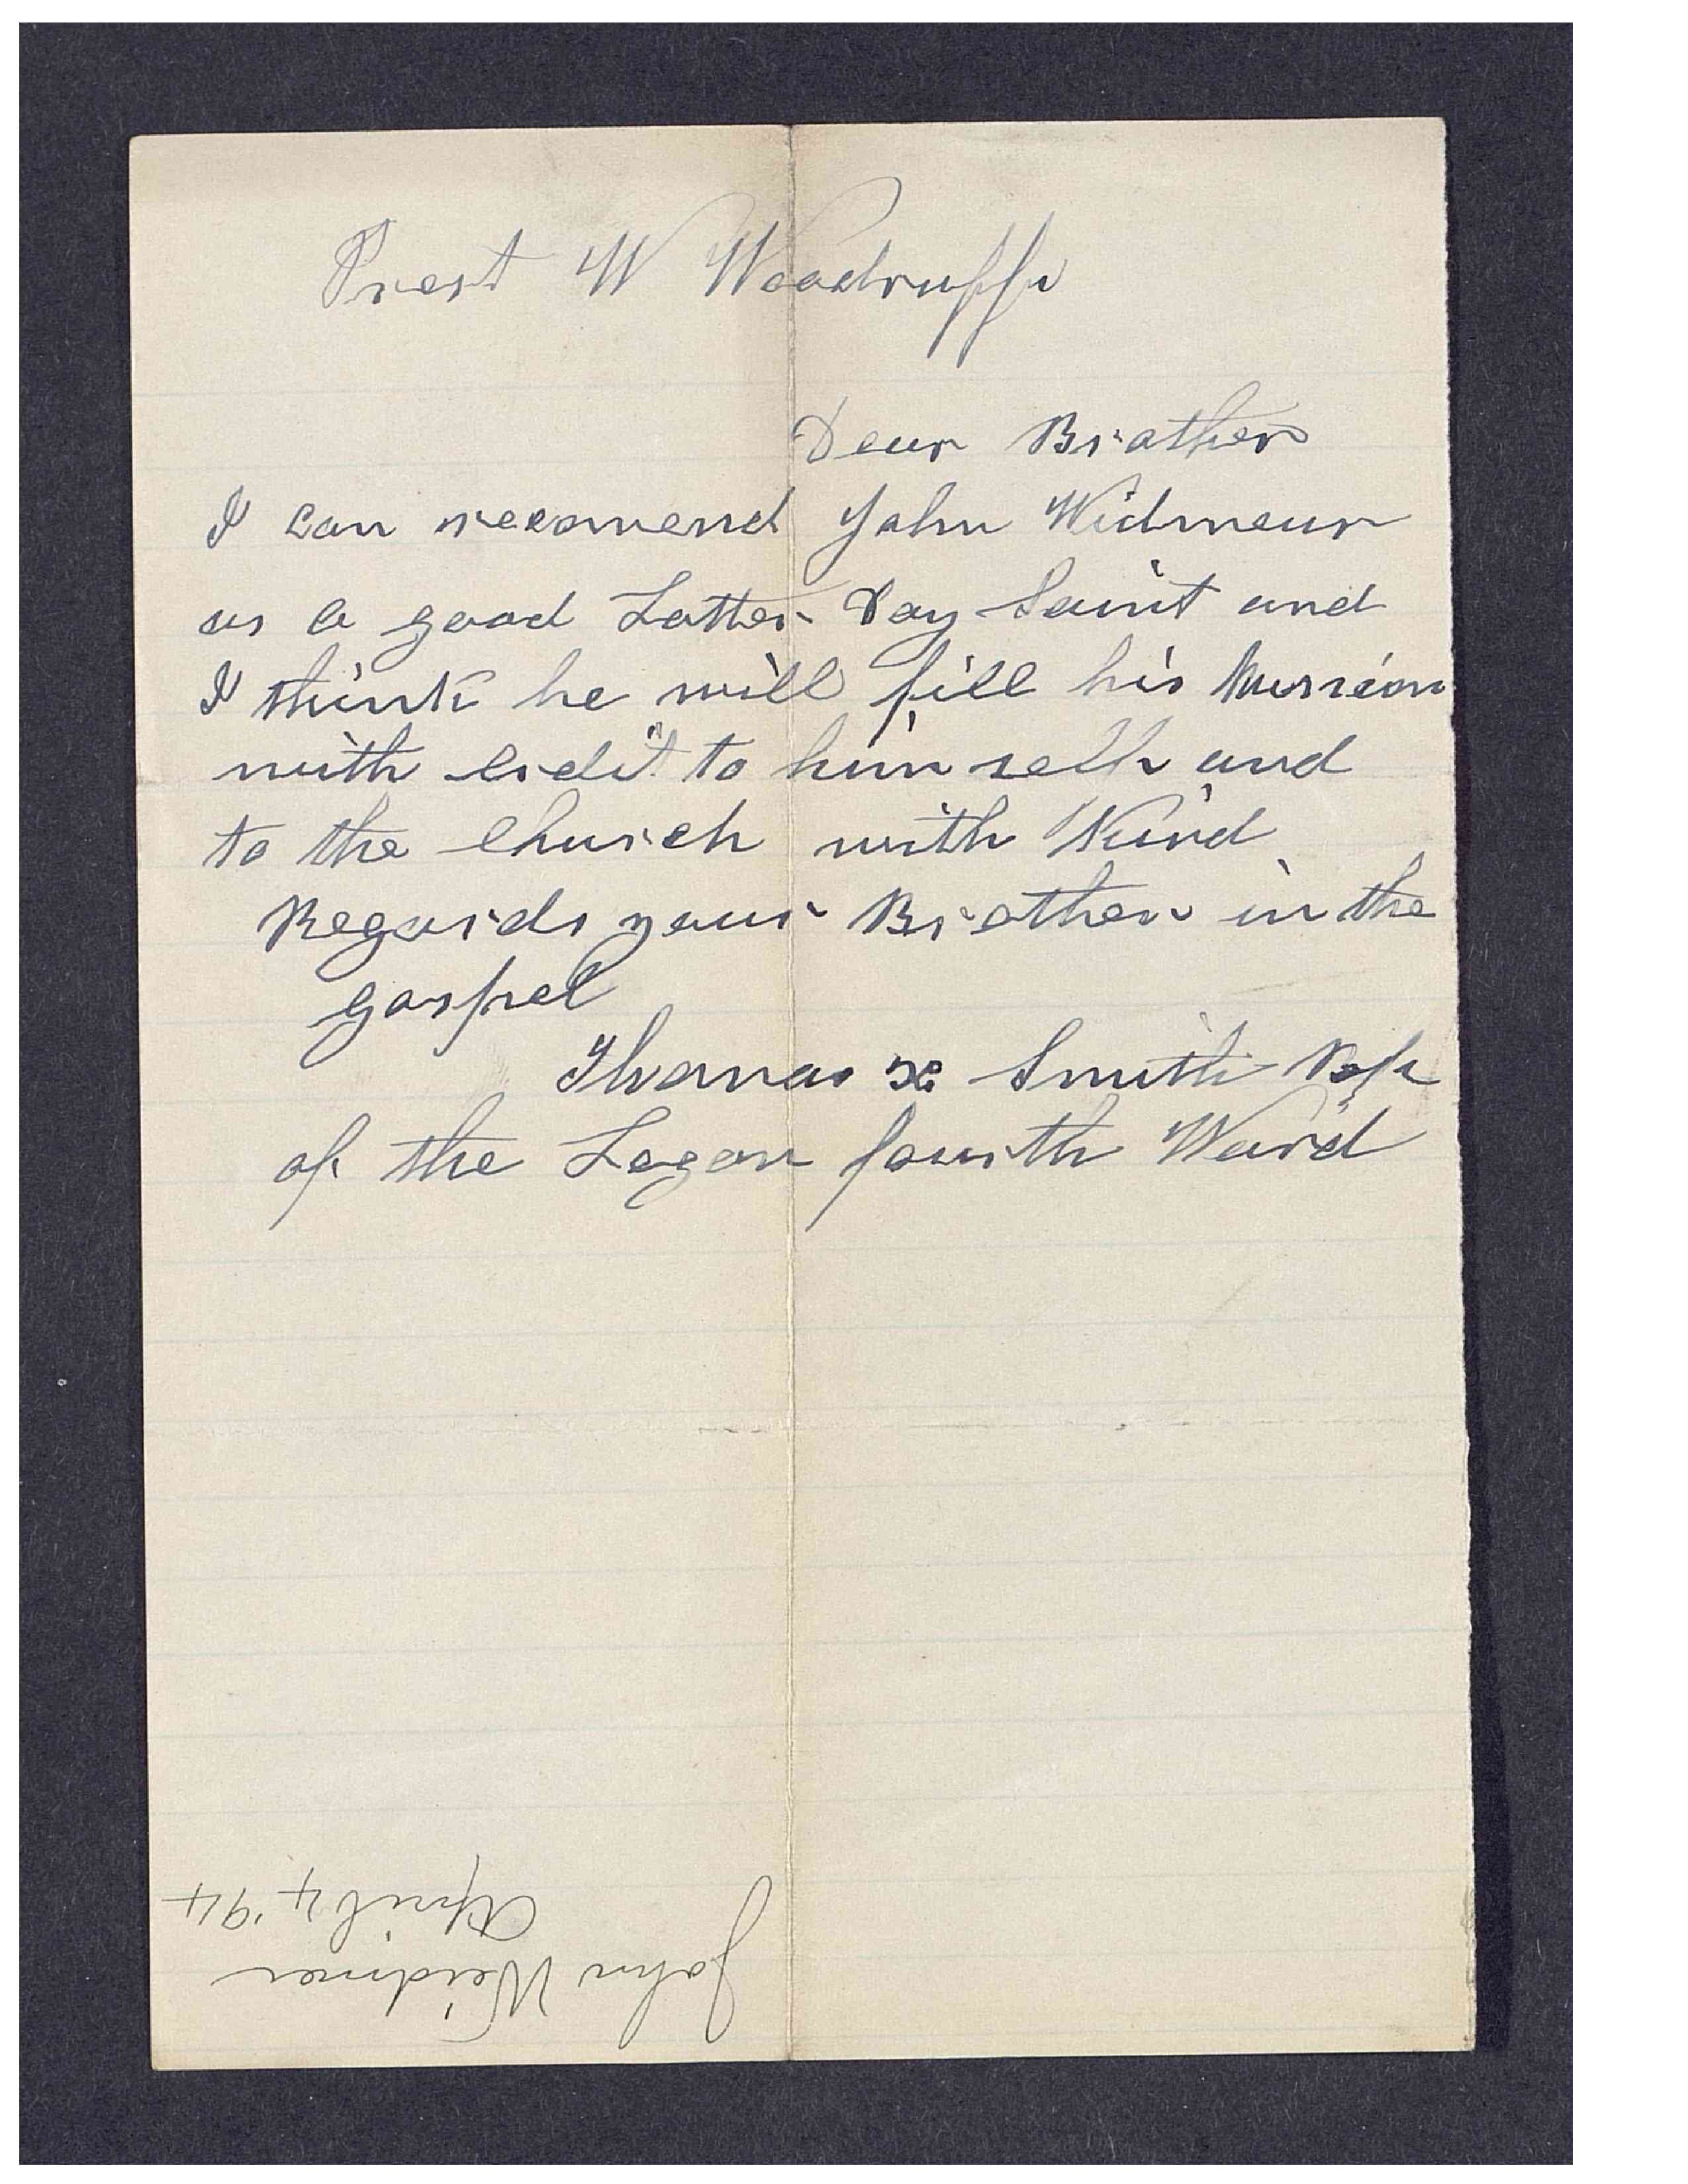 Prest W Woodruff
Dear Brother
I can recomend John Widmear
as a good Latter Day Saint and
I think he will fill his Mission
with credit to him self and
to the Church with Kind
Regards your Brother in the
gospel
Thomas X Smith Bp
of the Logan fourth Ward
John Weidmer
April 4 '94